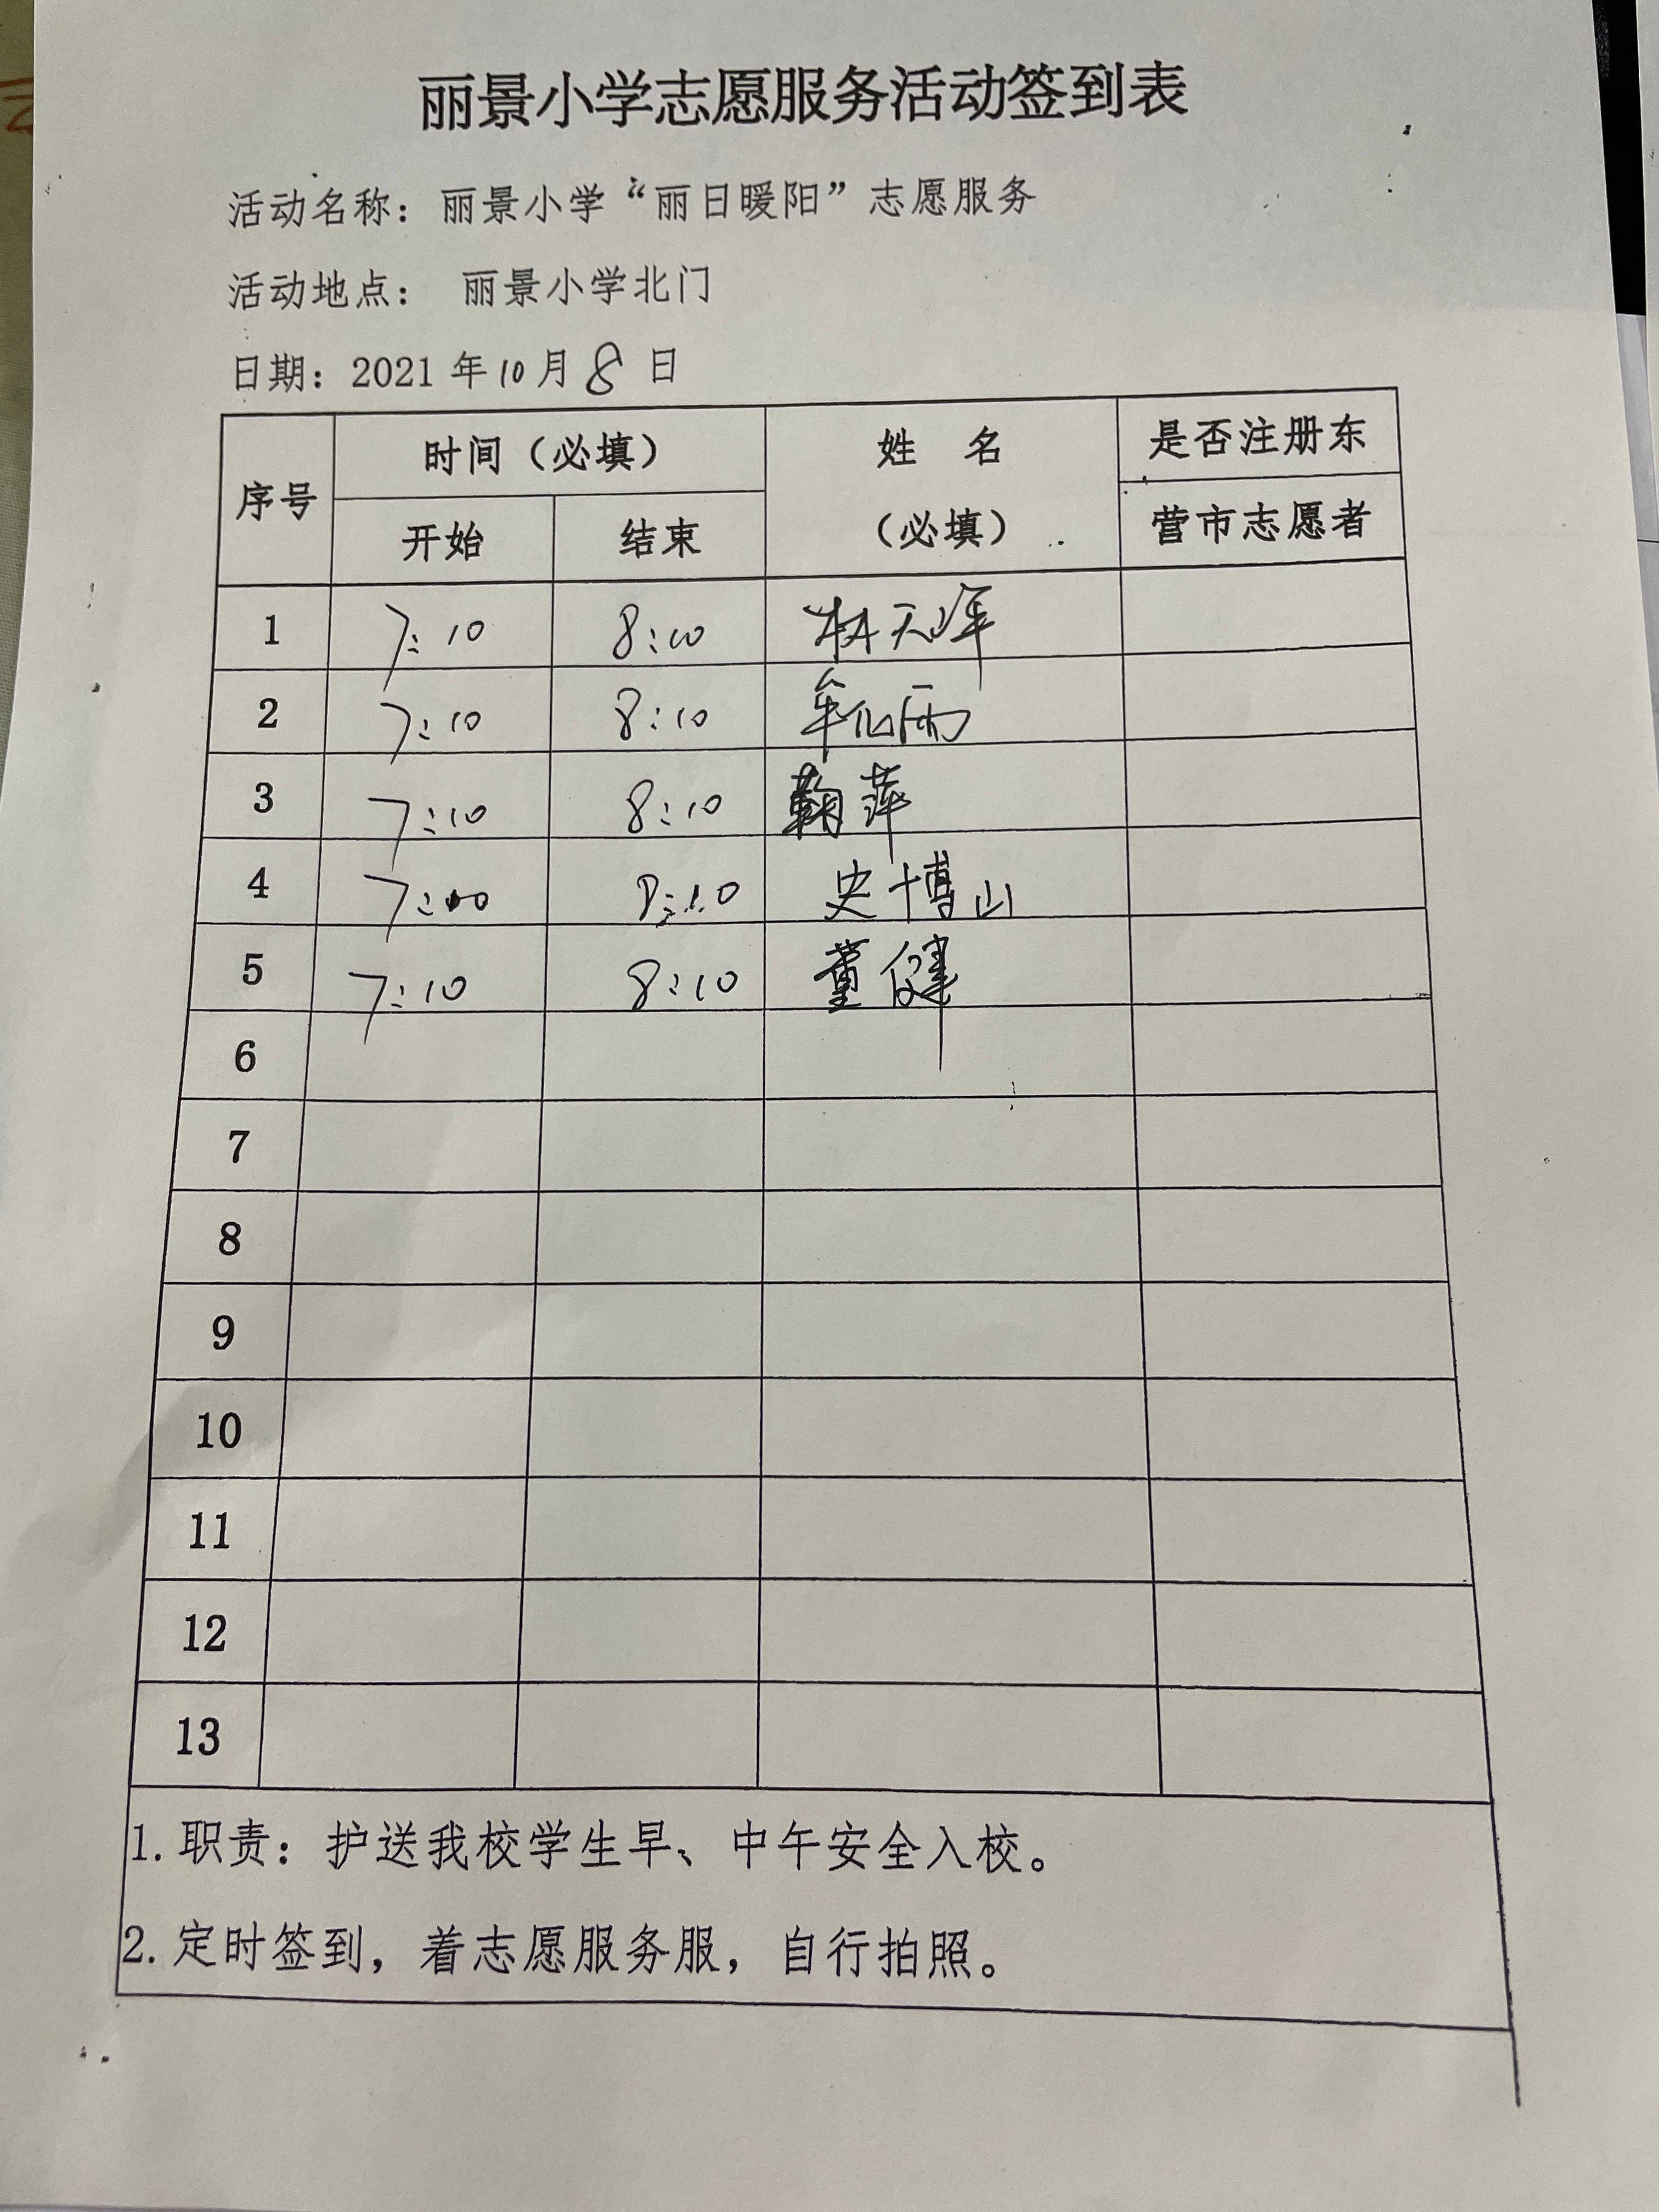 丽景小学志愿服务活动签到表
活动名称：丽景小学“丽日暖阳”志愿服务
活动地点： 丽景小学北门
日期：2021 年 10 月 8 日
序号 时间（必填） 姓 名 是否注册东
开始 结束 （必填） 营市志愿者
1 7:10 8:10 林天峰
2 7:10 8:10 牟仙雨
3 7:10 8:10 鞠萍
4 7:10 8:10 史博山
5 7:10 8:10 董健
6
7
8
9
10
11
12
13
1. 职责：护送我校学生早、中午安全入校。
2. 定时签到，着志愿服务服，自行拍照。